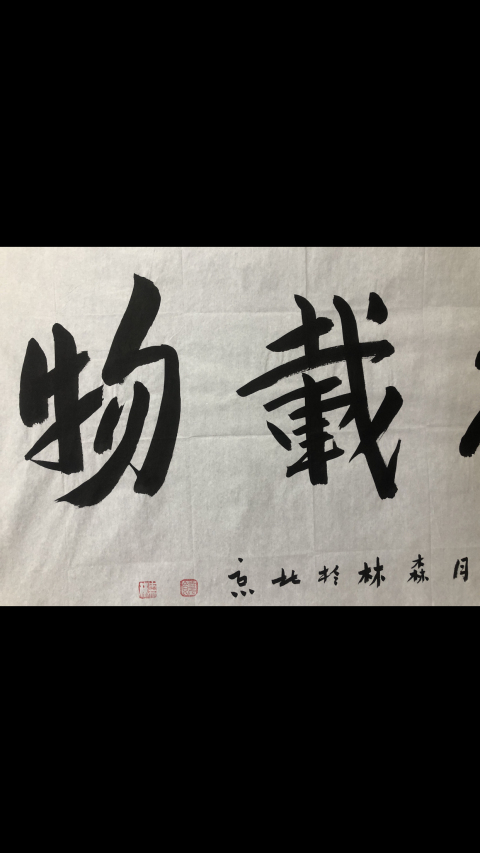 載物
月森林於北京